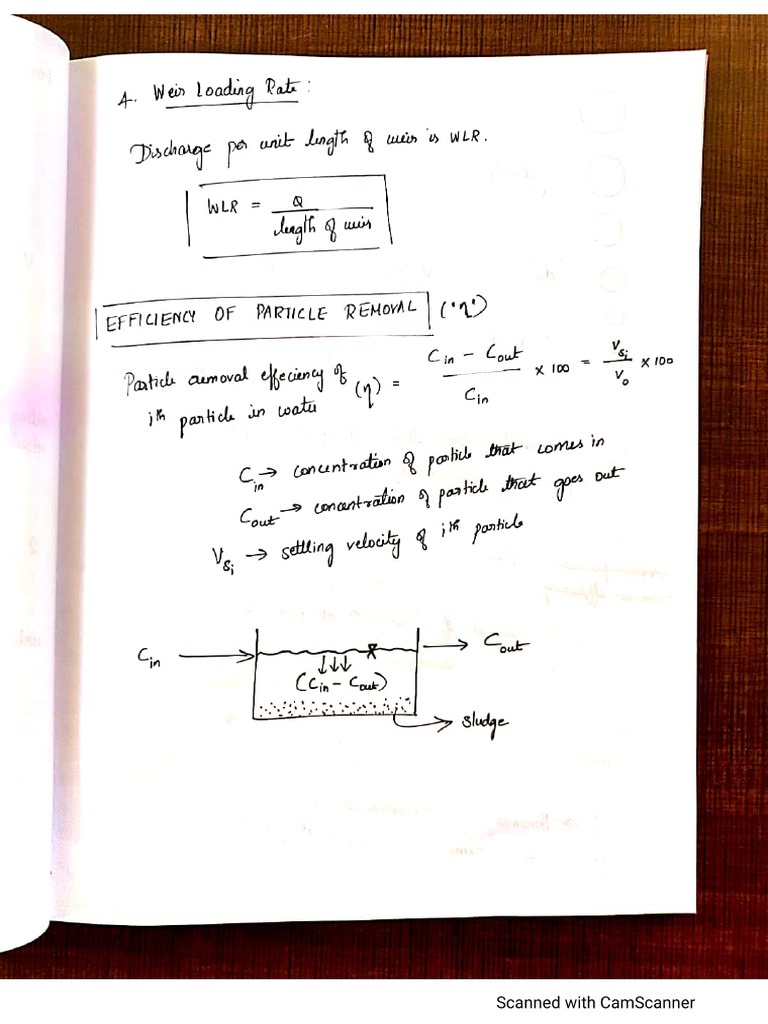 4. Weir Loading Rate :
Discharge per unit length of weir is WLR.
WLR = Q / length of weir
EFFICIENCY OF PARTICLE REMOVAL ('η')
Particle removal effeciency of ith particle in water (η) = (Cin − Cout) / Cin × 100 = Vsi / Vo × 100
Cin → concentration of particle that comes in
Cout → concentration of particle that goes out
Vsi → settling velocity of ith particle
Cin
Cout
(Cin − Cout)
sludge
Scanned with CamScanner